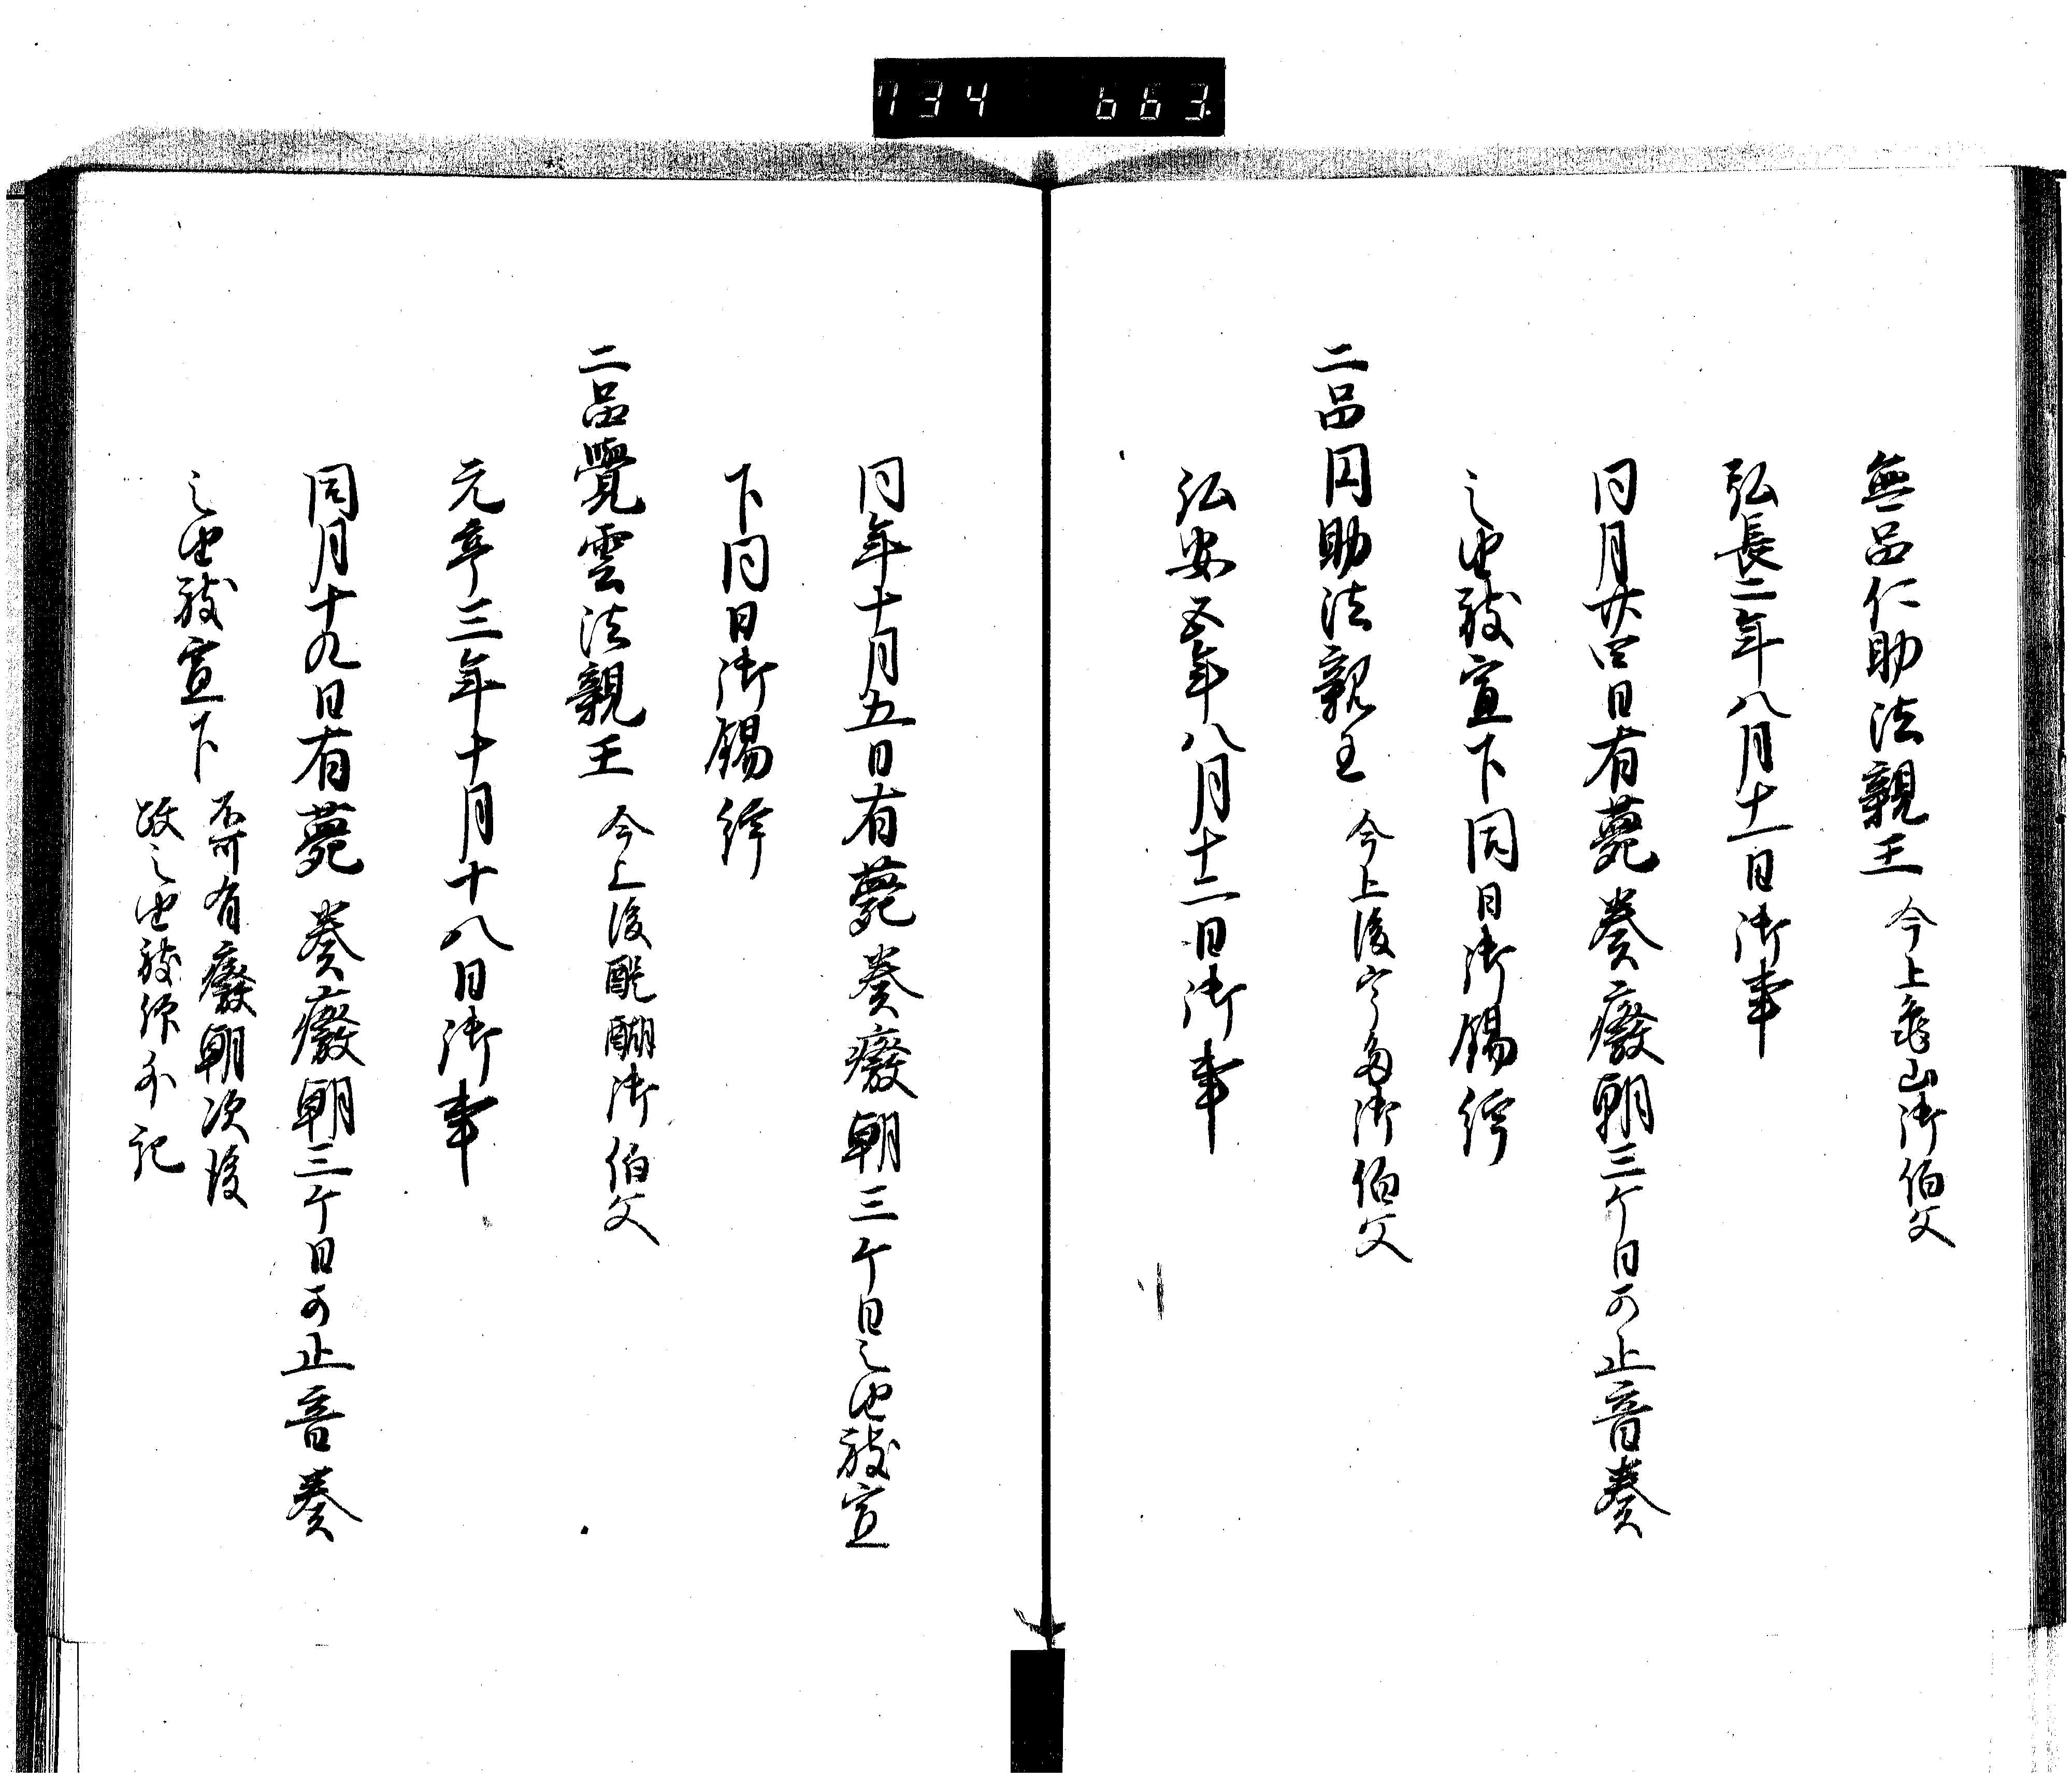 734 663
無品仁助法親王 今上亀山御伯父
弘長二年八月十一日御事
同月廿四日有薨奏癈朝三ケ日可止音奏
之由被宣下同日御錫紵
二品円助法親王 今上後宇多御伯父
弘安五年八月十二日御事
同年十月五日有薨奏癈朝三ケ日之由被宣
下同日御錫紵
二品覺雲法親王 今上後醍醐御伯父
元亨三年十月十八日御事
同月十九日有薨奏癈朝三ケ日可止音奏
之由被宣下
有癈朝次後
故之由被仰外記